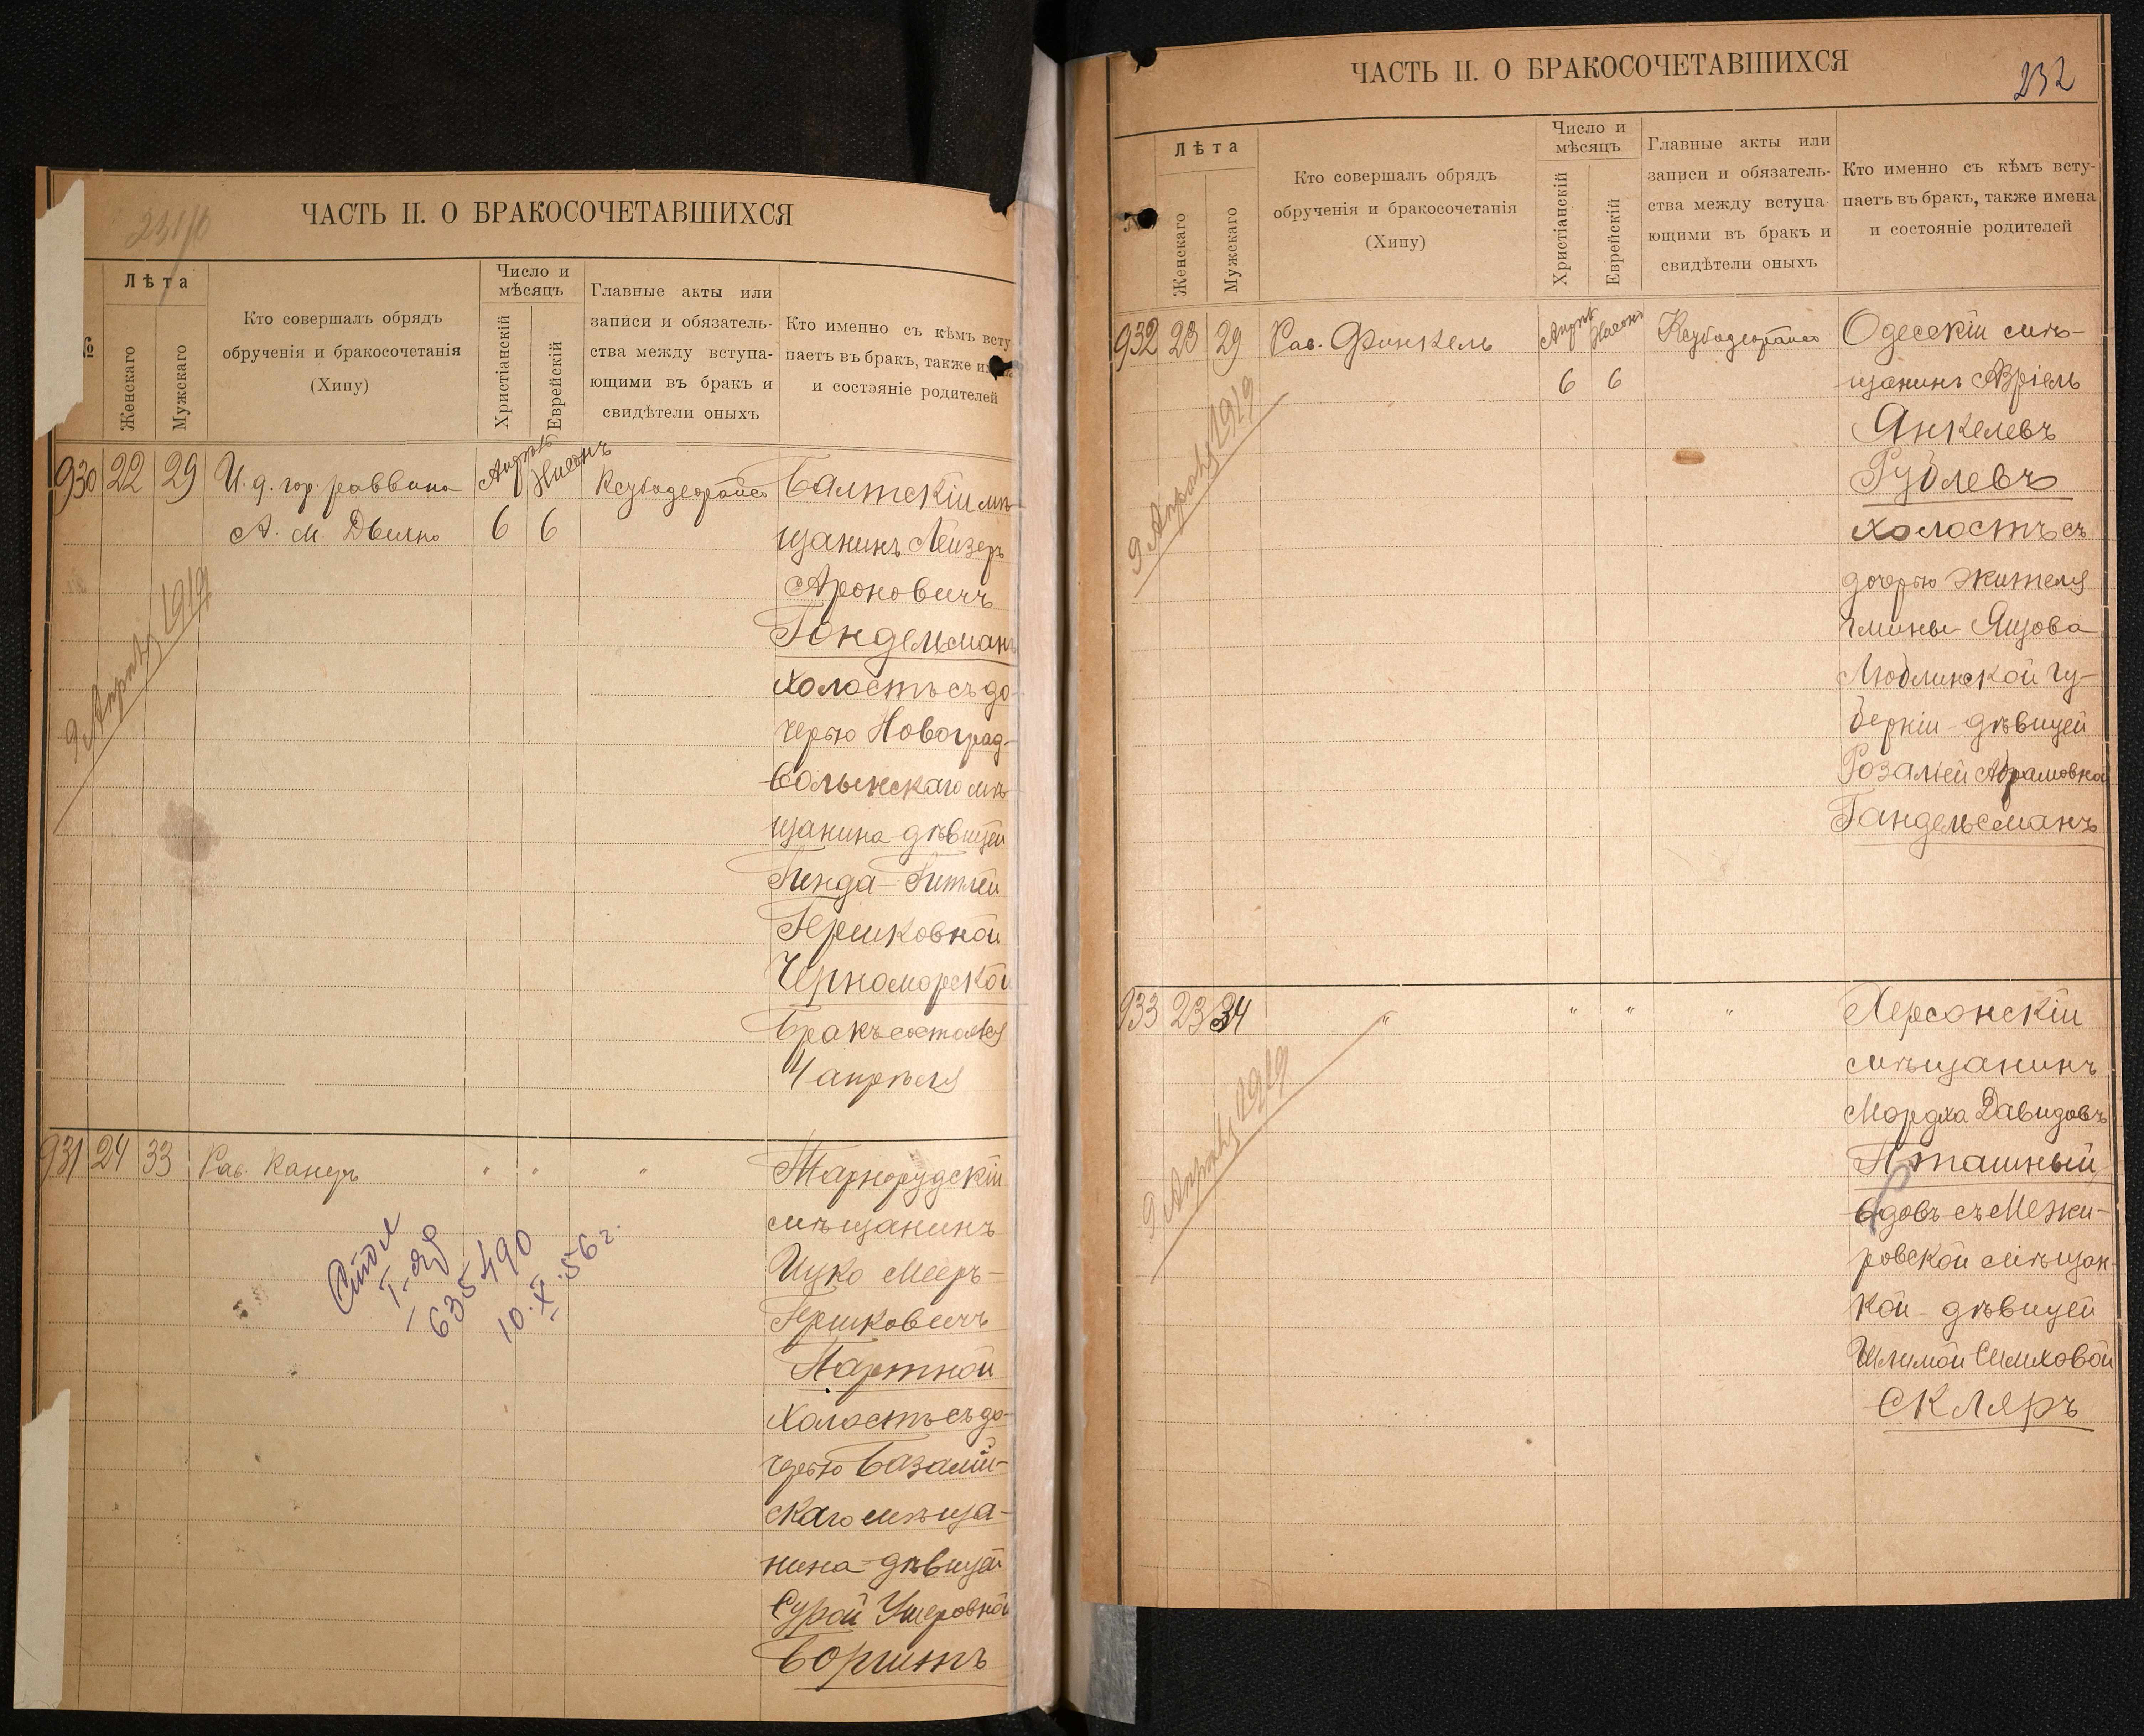 231/0
ЧАСТЬ II. О БРАКОСОЧЕТАВШИХСЯ
№
Лѣта
Женскаго
Мужскаго
Кто совершалъ обрядъ
обрученія и бракосочетанія
(Хипу)
Число и
мѣсяцъ
Христіанскій
Еврейскій
Главные акты или
записи и обязатель-
ства между вступа-
ющими въ бракъ и
свидѣтели оныхъ
Кто именно съ кѣмъ всту
паетъ въ бракъ, также
и состояніе родителей
930 22 29 И. д. гор. раввина Апрѣль Нисонъ Ксубадеорайсо Балтскій мѣ-
А. М. Двилно 6 6 щанинъ Лейзеръ
Ароновичъ
Гондельманъ
холостъ съ до-
черью Новоград-
волынскаго мѣ-
щанина дѣвицей
Гинда-Гитлей
Гершковной
Черноморской
Бракъ состоялся
4 апрѣля
9 Апрѣль 1919
931 24 33 Рав. Канеръ " " " Тарнорудскій
мѣщанинъ
Ицко Мееръ-
Гершковичъ
Партной
холостъ съ до-
черью Базалій-
скаго мѣща-
нина дѣвицей
Сурой Ушеровной
Боршть
635490
10.X.56 г.
ЧАСТЬ II. О БРАКОСОЧЕТАВШИХСЯ
232
Лѣта
Женскаго
Мужскаго
Кто совершалъ обрядъ
обрученія и бракосочетанія
(Хипу)
Число и
мѣсяцъ
Христіанскій
Еврейскій
Главные акты или
записи и обязатель-
ства между вступа
ющими въ бракъ и
свидѣтели оныхъ
Кто именно съ кѣмъ всту-
паетъ въ бракъ, также имена
и состояніе родителей
932 23 29 Рав. Финкель Апрѣль Нисонъ Ксубадеорайсо Одесскій мѣ-
6 6 щанинъ Азріель
Янкелевъ
Рублевъ
холостъ съ
дочерью жителя
гмины Яцова
Люблинской гу-
берніи - дѣвицей
Розаліей Абрамовной
Гандельсманъ
9 Апрѣль 1919
933 23 34 " " " " Херсонскій
мѣщанинъ
Мордха Давидовъ
Пташный
вдовъ съ Межи-
ровской мѣщан-
кой - дѣвицей
Шлимой Шлиховой
Скляръ
9 Апрѣль 1919